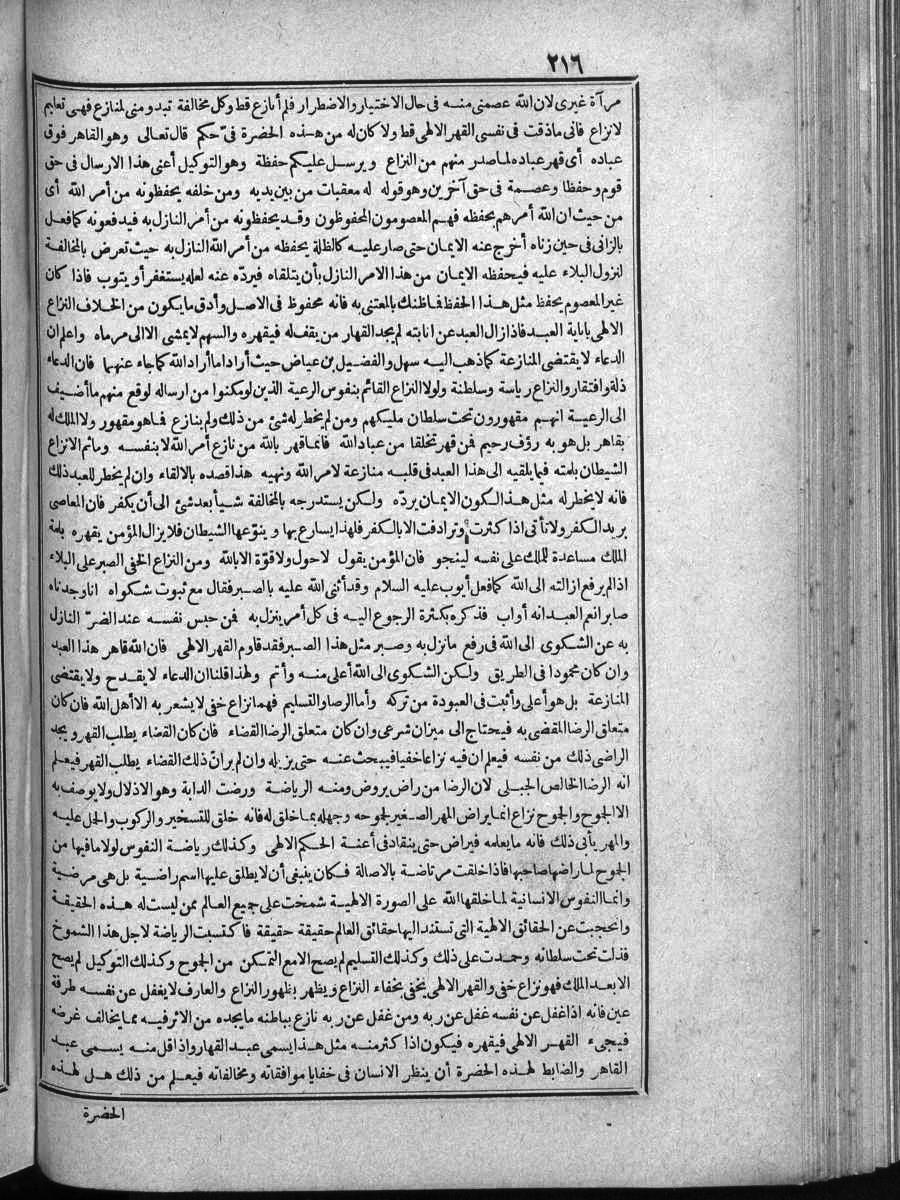 ٢١٦
مرآة غيرى لان الله عصمنى منه فى حال الاختيار والاضطرار فلم أنازع قط وكل مخالفة تبدو منى لمنازع فهى تعليم
لا نزاع فانى ماذقت فى نفسى القهر الالهى قط ولا كان له من هذه الحضرة فىّ حكم قال تعالى وهو القاهر فوق
عباده أى قهر عباده لما صدر منهم من النزاع ويرسل عليكم حفظة وهو التوكيل أعنى هذا الارسال فى حق
قوم وحفظا وعصمة فى حق آخرين وهو قوله له معقبات من بين يديه ومن خلفه يحفظونه من أمر الله أى
من حيث ان الله أمرهم بحفظه فهم المعصومون المحفوظون وقد يحفظونه من أمر النازل به فيدفعونه كما فعل
بالزانى فى حين زناه أخرج عنه الايمان حتى صار عليه كالظلة يحفظه من أمر الله النازل به حيث تعرض بالمخالفة
لنزول البلاء عليه فيحفظه الايمان من هذا الامر النازل بأن يتلقاه فيردّه عنه لعله يستغفر أو يتوب فاذا كان
غير المعصوم يحفظ مثل هذا الحفظ فما ظنك بالمعتنى به فانه محفوظ فى الاصل وأدق ما يكون من الخلاف النزاع
الالهى باباية العبد فاذا زال العبد عن انابته لم يجد القهار من يقف له فيقهره والسهم لا يمشى الا الى مرماه واعلم ان
الدعاء لا يقتضى المنازعة كما ذهب اليه سهل والفضيل بن عياض حيث أراد اما أراد الله كما جاء عنهما فان الدعاء
ذلة وافتقار والنزاع رياسة وسلطنة ولولا النزاع القائم بنفوس الرعية الذين لو مكنوا من ارساله لوقع منهم ما أضيف
الى الرعية انهم مقهورون تحت سلطان مليكهم ومن لم يخطر له شئ من ذلك ولم ينازع فما هو مقهور ولا الملك له
بقاهر بل هو به رؤف رحيم فمن قهر تخلقا من عباد الله فانما قهر بالله من نازع أمر الله لا بنفسه وما ثم الا نزاع
الشيطان بلمته فيما يلقيه الى هذا العبد فى قلبه منازعة لامر الله ونهيه هذا قصده بالالقاء وان لم يخطر للعبد ذلك
فانه لا يخطر له مثل هذا لكون الايمان يردّه ولكن يستدرجه بالمخالفة شيأ بعد شئ الى أن يكفر فان المعاصى
بريد الكفر ولا تأتى اذا كثرت وترادفت الا بالكفر فلهذا يسارع بها وينوّعها الشيطان فلا يزال المؤمن يقهره بلمة
الملك مساعدة للملك على نفسه لينجو فان المؤمن يقول لا حول ولا قوّة الا بالله ومن النزاع الخفى الصبر على البلاء
اذا لم يرفع ازالته الى الله كما فعل أيوب عليه السلام وقد أثنى الله عليه بالصبر فقال مع ثبوت شكواه انا وجدناه
صابرا نعم العبد انه أواب فذكره بكثرة الرجوع اليه فى كل أمر ينزل به فمن حبس نفسه عند الضرّ النازل
به عن الشكوى الى الله فى رفع ما نزل به وصبر مثل هذا الصبر فقد قاوم القهر الالهى فان الله قاهر هذا العبد
وان كان محمودا فى الطريق ولكن الشكوى الى الله أعلى منه وأتم ولهذا قلنا ان الدعاء لا يقدح ولا يقتضى
المنازعة بل هو أعلى وأثبت فى العبودة من تركه وأما الرضا والتسليم فهما نزاع خفى لا يشعر به الا أهل الله فان كان
متعلق الرضا المقضى به فيحتاج الى ميزان شرعى وان كان متعلق الرضا القضاء فان كان القضاء يطلب القهر ويجد
الراضى ذلك من نفسه فيعلم ان فيه نزاعا خفيا فيبحث عنه حتى يزيله وان لم ير ان ذلك القضاء يطلب القهر فيعلم
انه الرضا الخالص الجبلى لان الرضا من راض يروض ومنه الرياضة ورضت الدابة وهو الاذلال ولا يوصف به
الا الجوح والجوح نزاع انما يراض المهر الصغير لجوحه وجهله بما خلق له فانه خلق للتسخير والركوب والحمل عليه
والمهر يأبى ذلك فانه ما يعلمه فيراض حتى ينقاد فى أعنة الحكم الالهى وكذلك رياضة النفوس لولا ما فيها من
الجوح لما راضها صاحبها فاذا خلقت مرتاضة بالاصالة فكان ينبغى أن لا يطلق عليها اسم راضية بل هى مرضية
وانما النفوس الانسانية لما خلقها الله على الصورة الالهية شمخت على جميع العالم ممن ليست له هذه الحقيقة
وانحجبت عن الحقائق الالهية التى تستند اليها حقائق العالم حقيقة حقيقة فاكتسبت الرياضة لاجل هذا الشموخ
فذلت تحت سلطانه وحمدت على ذلك وكذلك التسليم لم يصح الا مع التمكن من الجوح وكذلك التوكيل لم يصح
الا بعد الملك فهو نزاع خفى والقهر الالهى يخفى بخفاء النزاع ويظهر بظهور النزاع والعارف لا يغفل عن نفسه طرفة
عين فانه اذا غفل عن نفسه غفل عن ربه ومن غفل عن ربه نازع بباطنه ما يجده من الاثر فيه مما يخالف غرضه
فيجىء القهر الالهى فيقهره فيكون اذا كثر منه مثل هذا يسمى عبد القهار واذا قل منه يسمى عبد
القاهر والضابط لهذه الحضرة أن ينظر الانسان فى خفايا موافقاته ومخالفاته فيعلم من ذلك هل لهذه
الحضرة